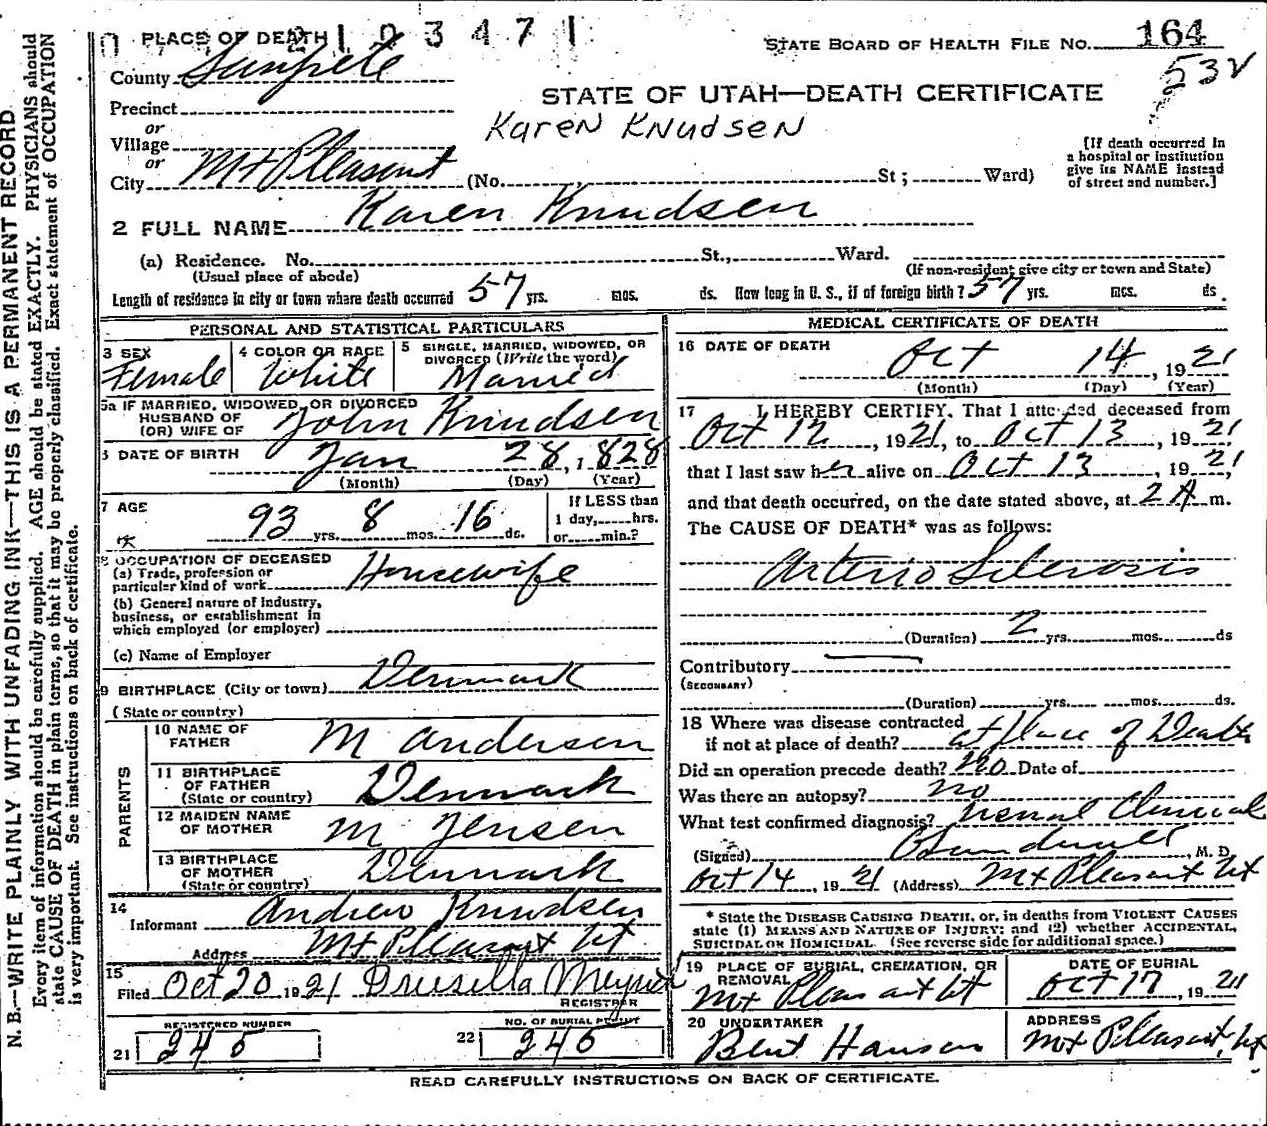 PLACE OF DEATH
2103471
STATE BOARD OF HEALTH FILE NO. 164
53V
County Sanpete
STATE OF UTAH—DEATH CERTIFICATE
Precinct
Karen Knudsen
or
Village
or
City Mt Pleasant (No. St ; Ward)
[If death occurred in
a hospital or institution
give its NAME instead
of street and number.]
2 FULL NAME Karen Knudsen
(a) Residence. No. St., Ward.
(Usual place of abode) (If non-resident give city or town and State)
Length of residence in city or town where death occurred 57 yrs. mos. ds. How long in U. S., if of foreign birth? 57 yrs. mos. ds.
PERSONAL AND STATISTICAL PARTICULARS
3 SEX
Female
4 COLOR OR RACE
White
5 SINGLE, MARRIED, WIDOWED, OR
DIVORCED (Write the word)
Married
5a IF MARRIED, WIDOWED, OR DIVORCED
HUSBAND OF
(OR) WIFE OF John Knudsen
6 DATE OF BIRTH Jan 28, 1828
(Month) (Day) (Year)
7 AGE
93 yrs. 8 mos. 16 ds.
If LESS than
1 day, hrs.
or min.?
8 OCCUPATION OF DECEASED
(a) Trade, profession or
particular kind of work Housewife
(b) General nature of industry,
business, or establishment in
which employed (or employer)
(c) Name of Employer
9 BIRTHPLACE (City or town) Denmark
(State or country)
PARENTS
10 NAME OF
FATHER M Andersen
11 BIRTHPLACE
OF FATHER
(State or country) Denmark
12 MAIDEN NAME
OF MOTHER M Jensen
13 BIRTHPLACE
OF MOTHER
(State or country) Denmark
14
Informant Andrew Knudsen
Address Mt Pleasant Ut
15
Filed Oct 20 1921 Drusilla
REGISTRAR
REGISTERED NUMBER
21 245
NO. OF BURIAL PERMIT
22 245
MEDICAL CERTIFICATE OF DEATH
16 DATE OF DEATH
Oct 14, 1921
(Month) (Day) (Year)
17 I HEREBY CERTIFY. That I attended deceased from
Oct 12, 1921, to Oct 13, 1921
that I last saw her alive on Oct 13, 1921
and that death occurred, on the date stated above, at 2 A m.
The CAUSE OF DEATH* was as follows:
Arterio Sclerosis
(Duration) 2 yrs. mos. ds
Contributory
(SECONDARY)
(Duration) yrs. mos. ds.
18 Where was disease contracted
if not at place of death? at place of Death
Did an operation precede death? No Date of
Was there an autopsy? no
What test confirmed diagnosis? usual Clinical
(Signed) , M. D.
Oct 14, 1921 (Address) Mt Pleasant Ut
* State the DISEASE CAUSING DEATH, or, in deaths from VIOLENT CAUSES
state (1) MEANS AND NATURE OF INJURY; and (2) whether ACCIDENTAL,
SUICIDAL OR HOMICIDAL. (See reverse side for additional space.)
19 PLACE OF BURIAL, CREMATION, OR
REMOVAL
Mt Pleasant Ut
DATE OF BURIAL
Oct 17, 1921
20 UNDERTAKER
Bent Hansen
ADDRESS
Mt Pleasant, Ut
READ CAREFULLY INSTRUCTIONS ON BACK OF CERTIFICATE.
N. B.—WRITE PLAINLY WITH UNFADING INK—THIS IS A PERMANENT RECORD
Every item of information should be carefully supplied. AGE should be stated EXACTLY. PHYSICIANS should
state CAUSE OF DEATH in plain terms, so that it may be properly classified. Exact statement of OCCUPATION
is very important. See instructions on back of certificate.